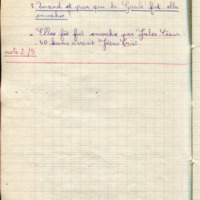 3 Quand et par qui la Gaule fut-elle
envahie?
Elle fût fut envahie par Jules César
40 avant Jésus Crist
note 2/3